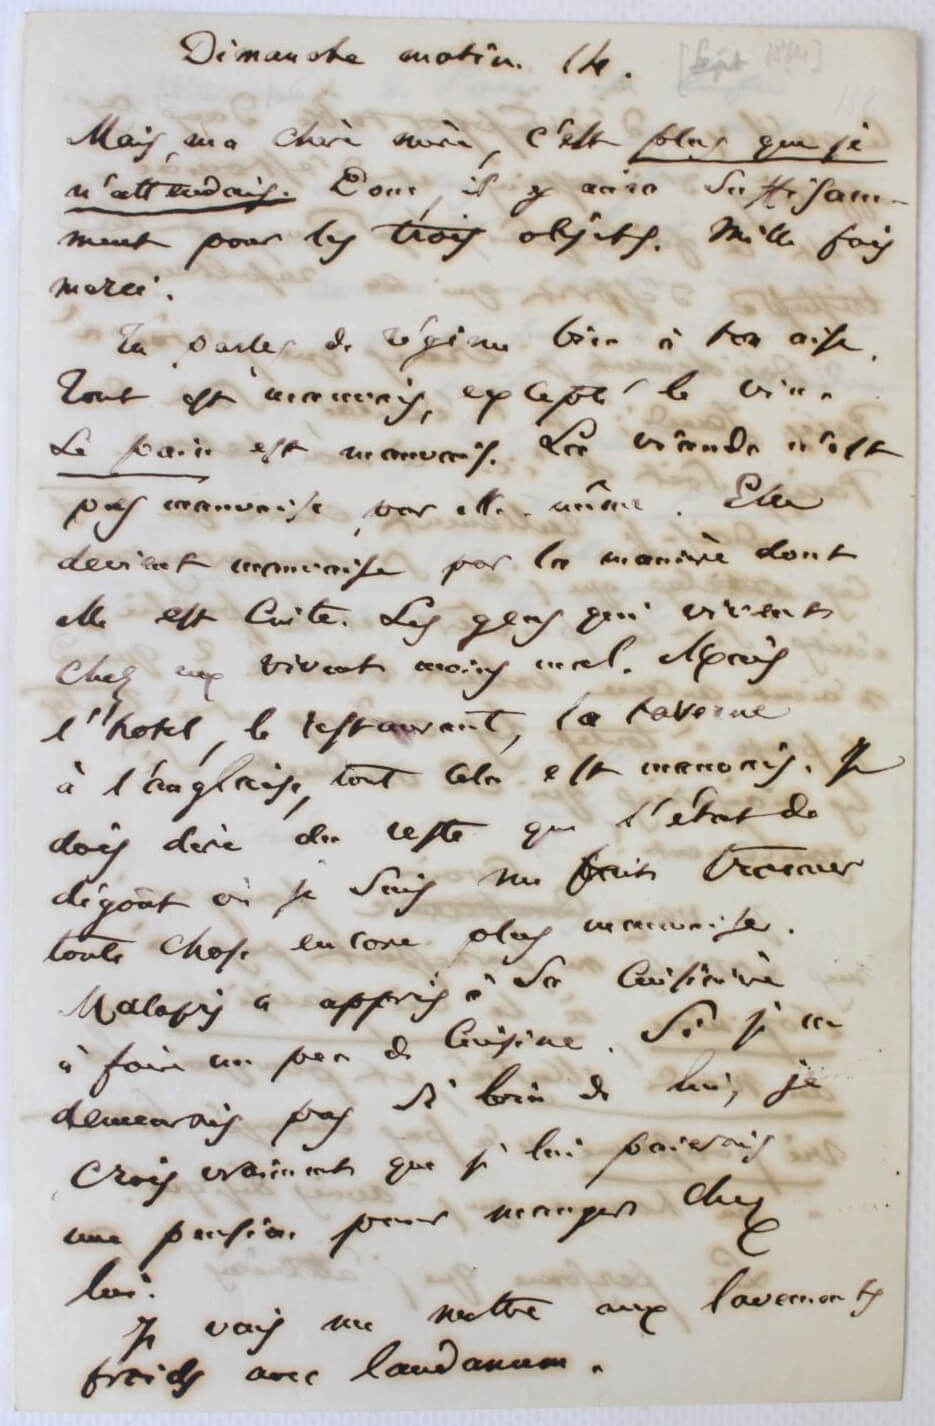 Dimanche matin. 14.
Mais, ma chère mère, c'est plus que je
n'attendais. Donc, il y aura suffisam-
ment pour les trois objets. Mille fois
merci.
Tu parles de régime bien à ton aise.
Tout est mauvais, excepté le vin.
Le pain est mauvais. La viande n'est
pas mauvaise par elle-même. Elle
devient mauvaise par la manière dont
elle est cuite. Les gens qui vivent
chez eux vivent moins mal. Mais
l'hotel, le restaurant, la taverne
à l'anglaise, tout cela est mauvais. Je
dois dire du reste que l'état de
dégoût où je suis me fait trouver
toute chose encore plus mauvaise.
Malassis a appris à sa cuisinière
à faire un peu de cuisine. Si je ne
demeurais pas si loin de lui, je
crois vraiment que je lui paierais
une pension pour manger chez
lui.
Je vais me mettre aux lavements
froids avec laudanum.